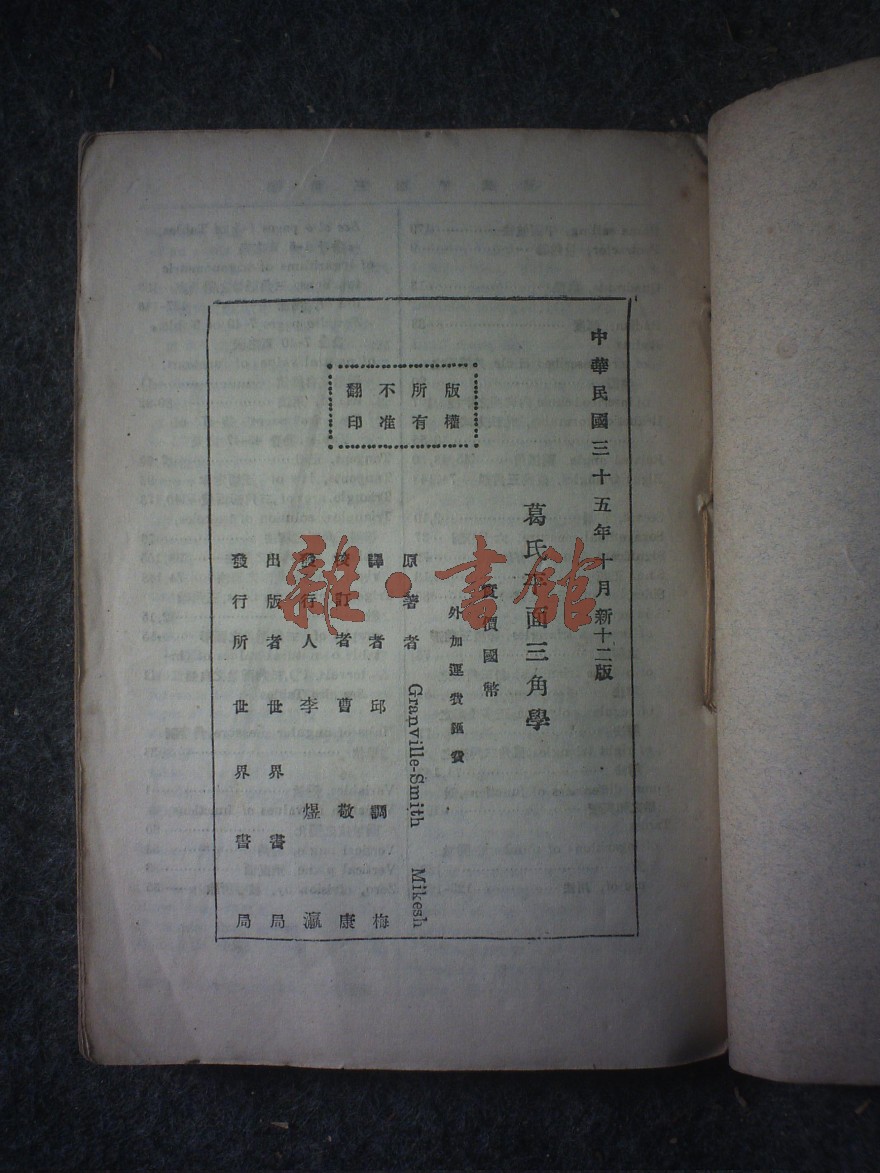 中華民國三十五年十月新十二版
版權
所有
不准
翻印
葛氏平面三角學
實價國幣
外加運費匯費
原著者 Granville-Smith Mikesh
譯者 邱調梅
校訂者 曹敬康
發行人 李煜瀛
出版者 世界書局
發行所 世界書局
雜·書館